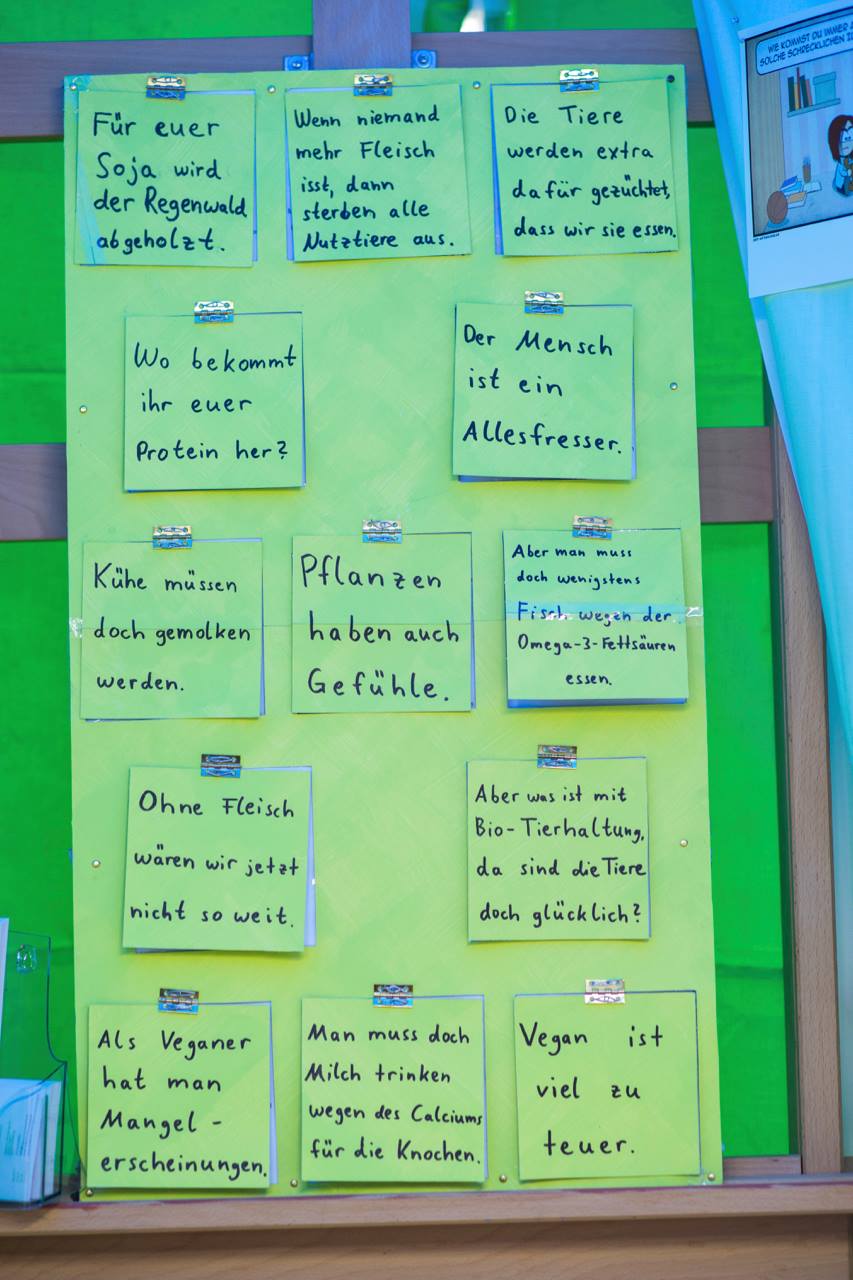 WIE KOMMST DU IMMER
SOLCHE SCHRECKLICHEN
Für euer
Soja wird
der Regenwald
abgeholzt.
Wenn niemand
mehr Fleisch
isst, dann
sterben alle
Nutztiere aus.
Die Tiere
werden extra
dafür gezüchtet,
dass wir sie essen.
Wo bekommt
ihr euer
Protein her?
Der Mensch
ist ein
Allesfresser.
Kühe müssen
doch gemolken
werden.
Pflanzen
haben auch
Gefühle.
Aber man muss
doch wenigstens
Fisch wegen der
Omega-3-Fettsäuren
essen.
Ohne Fleisch
wären wir jetzt
nicht so weit.
Aber was ist mit
Bio-Tierhaltung,
da sind die Tiere
doch glücklich?
Als Veganer
hat man
Mangel-
erscheinungen.
Man muss doch
Milch trinken
wegen des Calciums
für die Knochen.
Vegan ist
viel zu
teuer.